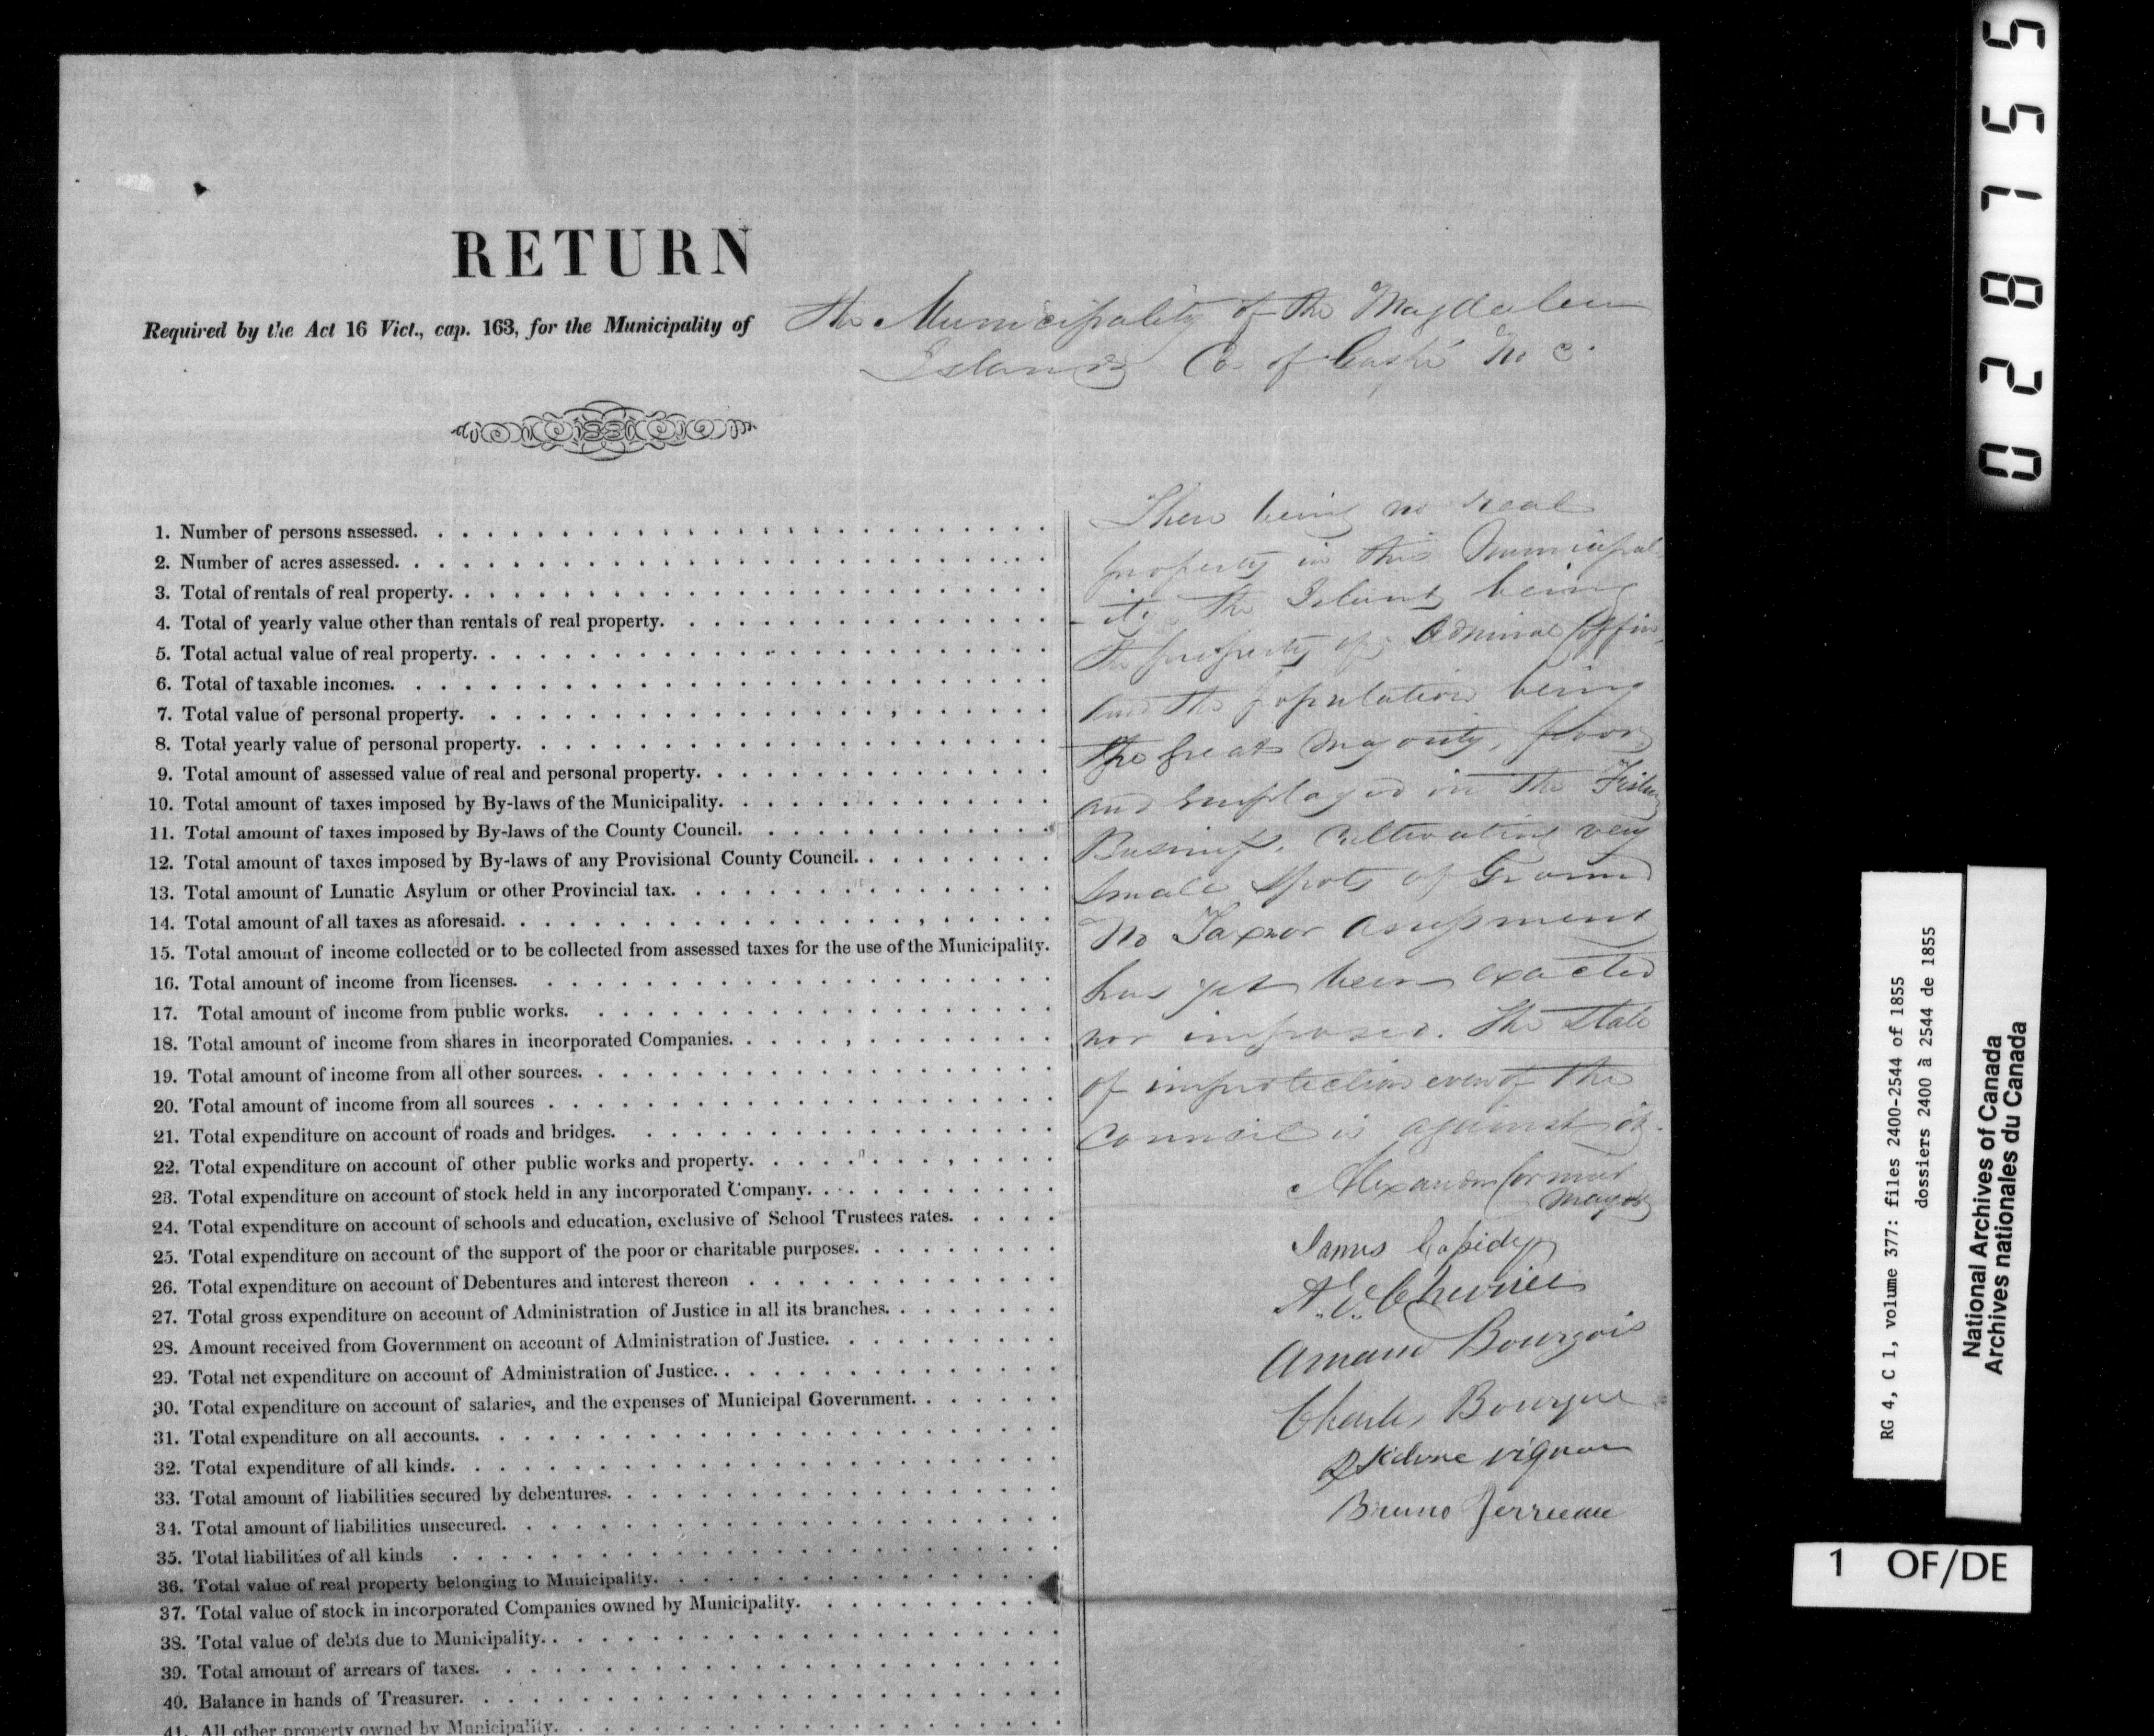 RETURN
Required by the Act 16 Vict., cap. 163, for the Municipality of The Municipality of the Magdalen
Islands Co. of Gaspé
1. Number of persons assessed.
2. Number of acres assessed.
3. Total of rentals of real property.
4. Total of yearly value other than rentals of real property.
5. Total actual value of real property.
6. Total of taxable incomes.
7. Total value of personal property.
8. Total yearly value of personal property.
9. Total amount of assessed value of real and personal property.
10. Total amount of taxes imposed by By-laws of the Municipality.
11. Total amount of taxes imposed by By-laws of the County Council.
12. Total amount of taxes imposed by By-laws of any Provisional County Council.
13. Total amount of Lunatic Asylum or other Provincial tax.
14. Total amount of all taxes as aforesaid.
15. Total amount of income collected or to be collected from assessed taxes for the use of the Municipality.
16. Total amount of income from licenses.
17. Total amount of income from public works.
18. Total amount of income from shares in incorporated Companies.
19. Total amount of income from all other sources.
20. Total amount of income from all sources
21. Total expenditure on account of roads and bridges.
22. Total expenditure on account of other public works and property.
23. Total expenditure on account of stock held in any incorporated Company.
24. Total expenditure on account of schools and education, exclusive of School Trustees rates.
25. Total expenditure on account of the support of the poor or charitable purposes.
26. Total expenditure on account of Debentures and interest thereon
27. Total gross expenditure on account of Administration of Justice in all its branches.
28. Amount received from Government on account of Administration of Justice.
29. Total net expenditure on account of Administration of Justice.
30. Total expenditure on account of salaries, and the expenses of Municipal Government.
31. Total expenditure on all accounts.
32. Total expenditure of all kinds.
33. Total amount of liabilities secured by debentures.
34. Total amount of liabilities unsecured.
35. Total liabilities of all kinds
36. Total value of real property belonging to Municipality.
37. Total value of stock in incorporated Companies owned by Municipality.
38. Total value of debts due to Municipality.
39. Total amount of arrears of taxes.
40. Balance in hands of Treasurer.
41. All other property owned by Municipality.
There being no real
property in this Municipal
-ity, the Islands being
the property of Admiral Coffin,
and the population being
the great majority, poor
and employed in the Fishing
Business. Cultivating very
small spots of Ground
No Tax nor assessment
has yet been exacted
nor imposed. The State
of even of the
Council is against it.
Alexander Cormier
Mayor
James Cassidy
Bourgois
Charles
vigneau
Bruno Terrieau
028155
RG 4, C 1, volume 377: files 2400-2544 of 1855
dossiers 2400 à 2544 de 1855
National Archives of Canada
Archives nationales du Canada
1 OF/DE